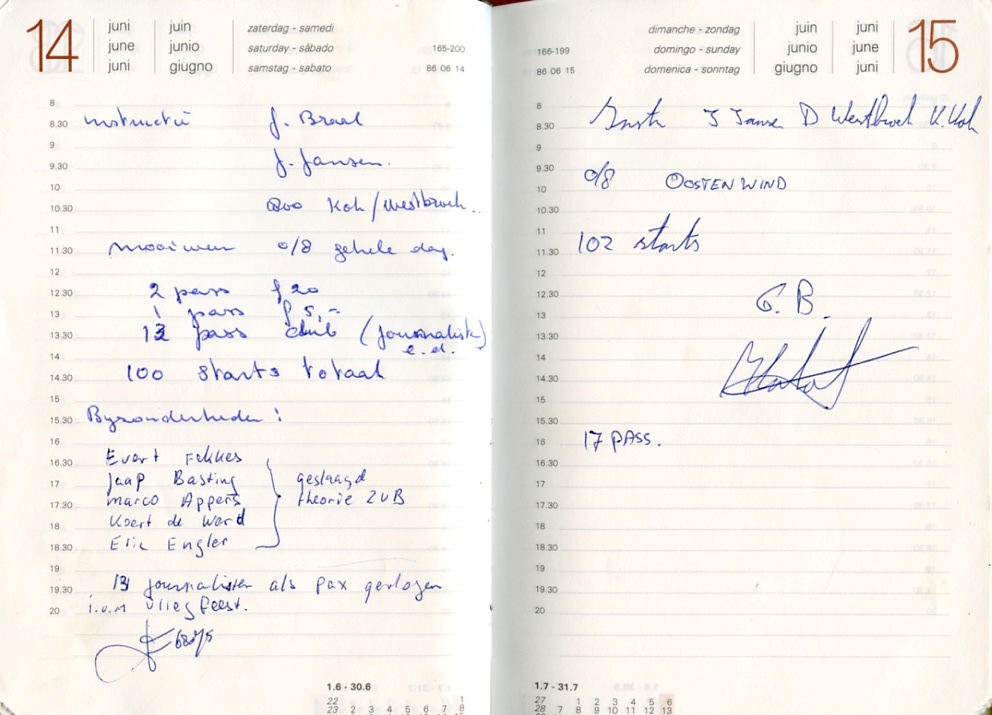 14
juni juin zaterdag - samedi
june junio saturday - sábado 165-200
juni giugno samstag - sabato 86 06 14
8
8.30 instructie J. Braal
9
9.30 J. Jansen.
10
10.30 Koh / Westbroek..
11
11.30 mooi weer 0/8 gehele dag.
12
12.30 2 pass f 20
13 1 pass f 5,-
13.30 13 pass club (journalist)
e.d.
14
14.30 100 starts totaal
15
15.30 Byzonderheden:
16
16.30 Evert Fekkes
17 Jaap Basting geslaagd
17.30 Marco Appers theorie ZVB
18 Koert de Werd
18.30 Eric Engler
19
19.30 13 journalisten als pax gevlogen
20 i.v.m vliegfeest.
1.6 - 30.6
22 1
23 2 3 4 5 6 7 8
dimanche - zondag juin juni
166-199 domingo - sunday junio june
86 06 15 domenica - sonntag giugno juni
15
8
8.30 J Jansen D Westbroek K. Koh
9
9.30 0/8 OOSTENWIND
10
10.30
11
11.30 102 starts
12
12.30 G.B.
13
13.30
14
14.30
15
15.30
16 17 PASS.
16.30
17
17.30
18
18.30
19
19.30
20
1.7 - 31.7
27 1 2 3 4 5 6
28 7 8 9 10 11 12 13